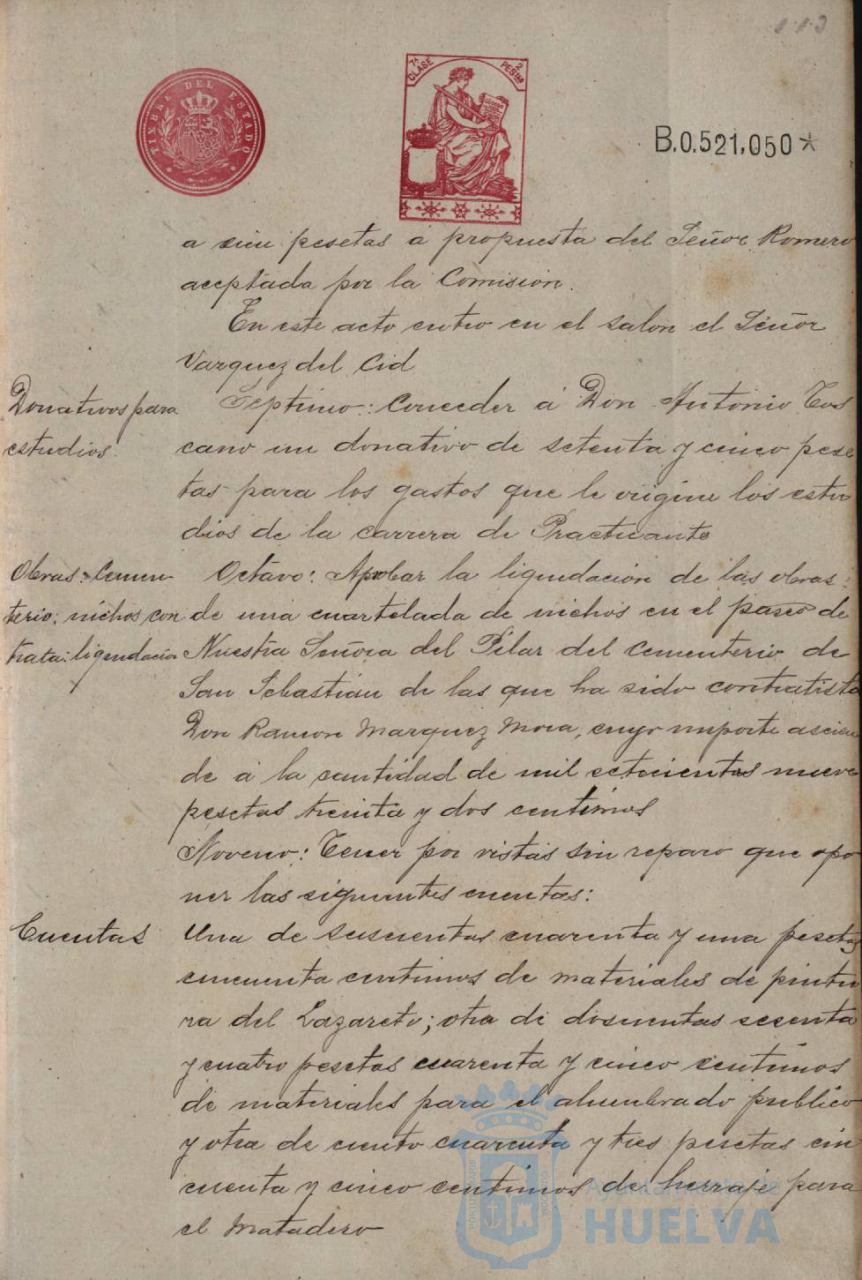 113
TIMBRE DEL ESTADO
7ª CLASE 2 PESETAS
B.0.521.050*
a cien pesetas a propuesta del Señor Romero
aceptada por la Comisión.
En este acto entro en el salon el Señor
Vazquez del Cid
Donativos para
estudios.
Septimo: Conceder á Don Antonio Tos
cano un donativo de setenta y cinco pese
tas para los gastos que le origine los estu
dios de la carrera de Practicante
Obras: Cemen
terio: nichos con
trata: liquidacion
Octavo: Aprobar la liquidación de las obras
de una cuartelada de nichos en el paseo de
Nuestra Señora del Pilar del cementerio de
San Sebastián de las que ha sido contratista
Don Ramon Marquez Mora, cuyo importe ascien
de á la cantidad de mil nueve
pesetas treinta y dos centimos
Noveno: Tener por vistas sin reparo que opo
ner las siguientes cuentas:
Cuentas
Una de cuarenta y una pesetas
cincuenta centimos de materiales de pintu
ra del Lazareto; otra de doscientas sesenta
y cuatro pesetas cuarenta y cinco centimos
de materiales para el alumbrado publico
y otra de ciento cuarenta y tres pesetas cin
cuenta y cinco centimos de herraje para
el Matadero
Ayuntamiento de
HUELVA